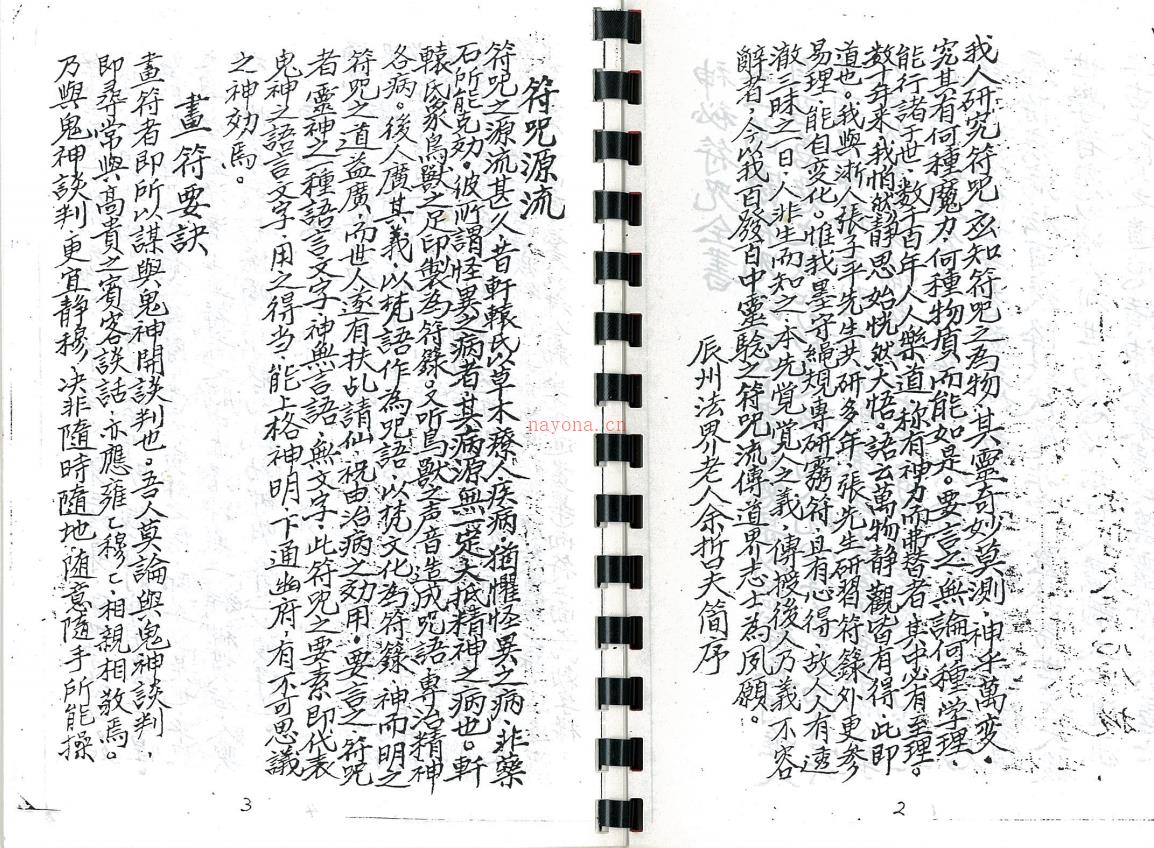 我人研究符咒玄知符咒之為物，其靈奇妙莫測，神乎萬變。
究其有何種魔力，何種物質，而能如是。要言之，無論何種學理，
能行諸于世，數千百年，人人樂道，称有神力而弗替者，其中必有至理。
数十年来，我悄然静思，始恍然大悟。語玄萬物静觀皆有得，此即
道也。我與浙人張子平先生共研多年，張先生研習符籙外更参
易理，能自变化。惟我墨守繩規，專研靈符，且有心得，故人人有透
澈三昧之一日，人非生而知之，本先覺覺人之義，傳授後人，乃義不容
辭者，今以我百發百中靈驗之符咒流傳道界志士為夙願。
辰州法界老人余哲夫简序
2
符咒源流
符咒之源流甚久，昔軒轅氏以草木療人疾病，猶懼怪異之病，非藥
石所能克効。彼所謂怪異之病者，其病源無一定，大抵精神之病也。軒
轅氏象鳥獸之足印製為符籙。又听鳥獸之声音造成咒語，專治精神
各病。後人廣其義，以梵語作為咒語，以梵文化為符籙，神而明之，
符咒之道益廣，而世人遂有扶乩請仙，祝由治病之効用。要言之，符咒
者靈神之一種語言文字，神無言語，無文字，此符咒之要素，即代表
鬼神之語言文字，用之得当，能上格神明，下通幽府，有不可思議
之神効焉。
畫符要訣
畫符者即所以謀與鬼神開談判也。吾人莫論與鬼神談判，
即尋常與高貴之賓客談話，亦應雍雍穆穆，相親相敬焉。
乃與鬼神談判，更宜静穆，决非隨時隨地，随意隨手所能操
3
nayona.cn